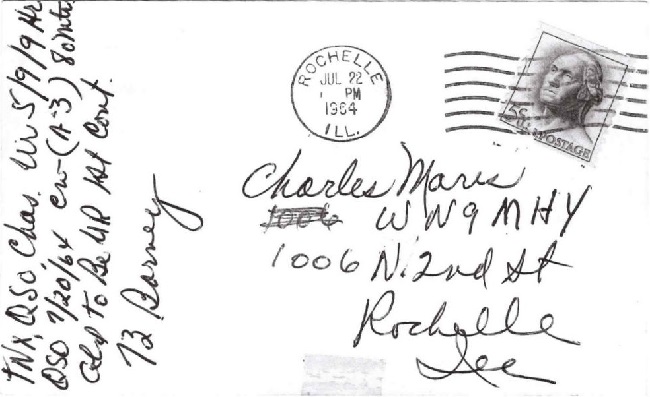 TNX QSO Chas. Ur 5/9/9 Hr
QSO 7/20/64 CW-(A-3) 80 mtrs
Gld to Be UR 1st Cont.
73 Barney
ROCHELLE
JUL 22
PM
1964
ILL.
5¢ U.S. POSTAGE
Charles Mares
1006 WN9MHY
1006 N. 2nd St
Rochelle
Ill